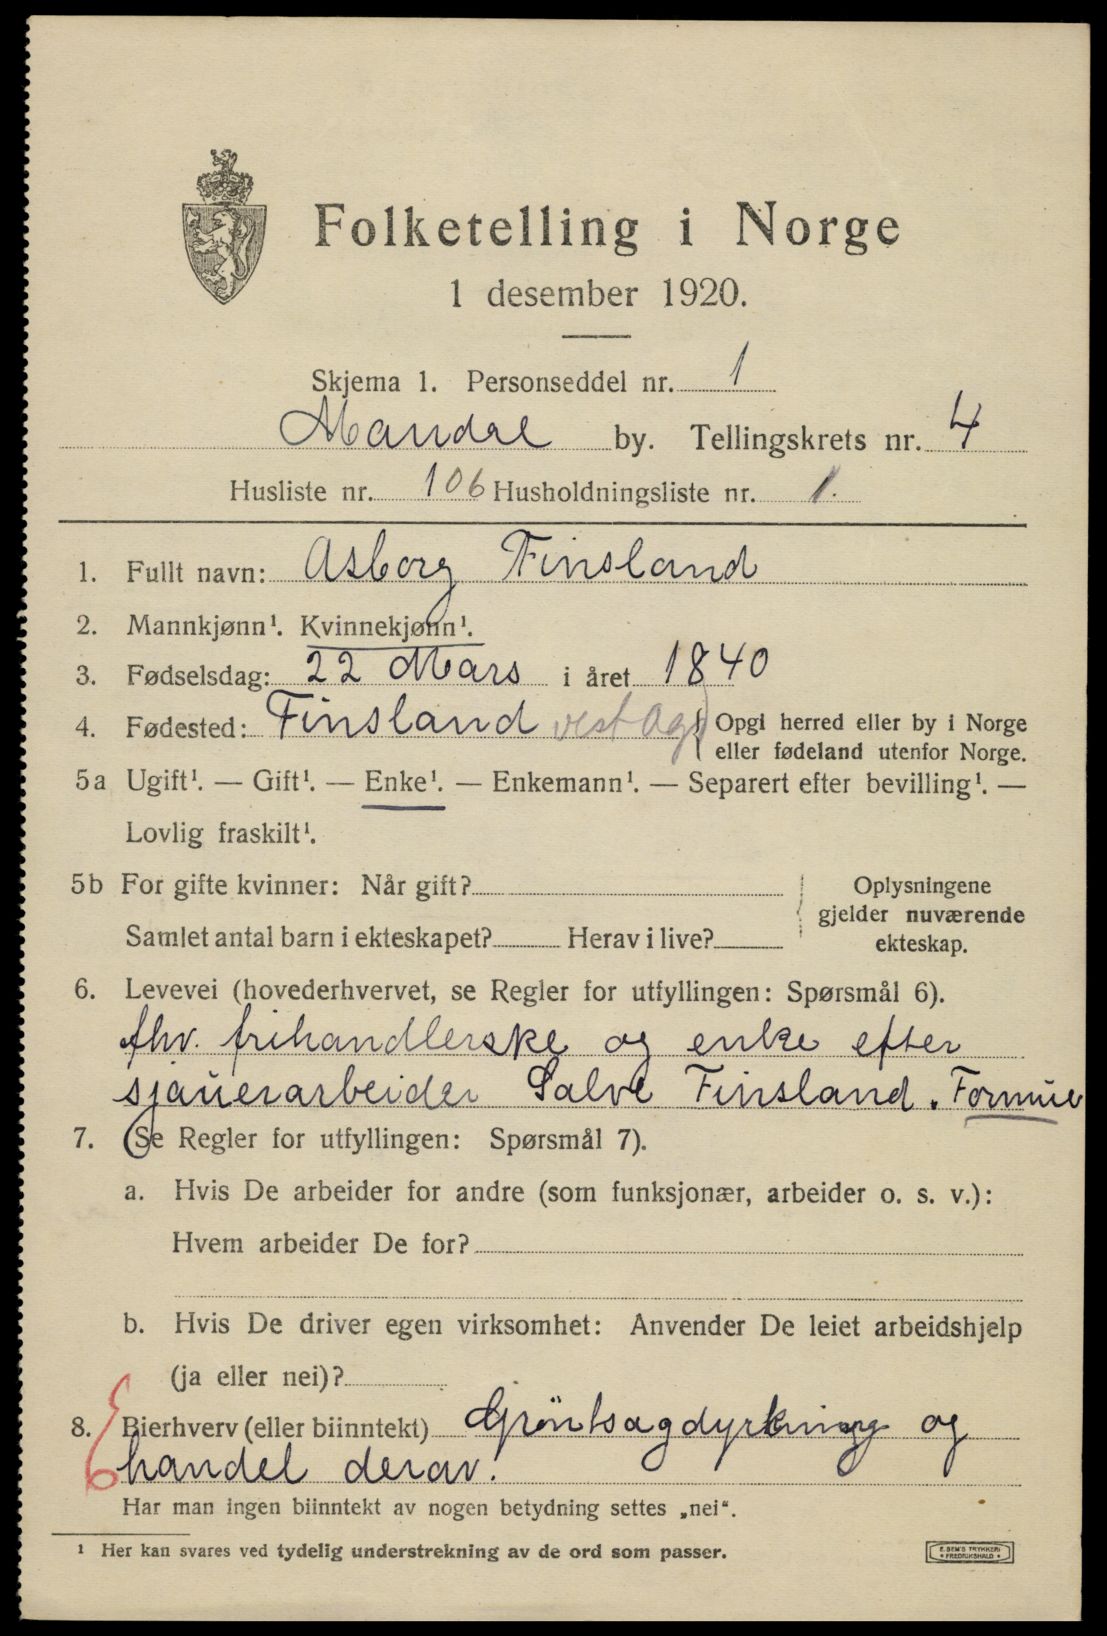 Folketelling i Norge
1 desember 1920.
Skjema 1. Personseddel nr. 1
Mandal by. Tellingskrets nr. 4
Husliste nr. 106 Husholdningsliste nr. 1.
1. Fullt navn: Asborg Finsland
2. Mannkjønn¹. Kvinnekjønn¹.
3. Fødselsdag: 22 Mars i året 1840
4. Fødested: Finsland vest Agd { Opgi herred eller by i Norge
eller fødeland utenfor Norge.
5a Ugift¹. — Gift¹. — Enke¹. — Enkemann¹. — Separert efter bevilling¹. —
Lovlig fraskilt¹.
5b For gifte kvinner: Når gift?
Samlet antal barn i ekteskapet? Herav i live?
Oplysningene
gjelder nuværende
ekteskap.
6. Levevei (hovederhvervet, se Regler for utfyllingen: Spørsmål 6).
fhv. frihandlerske og enke efter
sjauerarbeider Salve Finsland. Formue
7. (Se Regler for utfyllingen: Spørsmål 7).
a. Hvis De arbeider for andre (som funksjonær, arbeider o. s. v.):
Hvem arbeider De for?
b. Hvis De driver egen virksomhet: Anvender De leiet arbeidshjelp
(ja eller nei)?
8. Bierhverv (eller biinntekt) Gröntsagdyrkning og
handel derav.
Har man ingen biinntekt av nogen betydning settes „nei“.
¹ Her kan svares ved tydelig understrekning av de ord som passer.
E. SEM'S TRYKKERI
• FREDRIKSHALD •